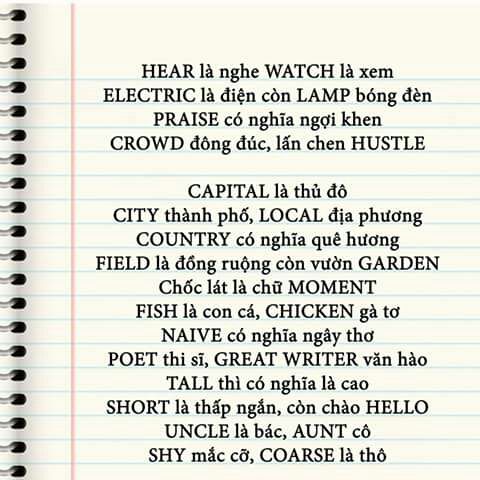 HEAR là nghe WATCH là xem
ELECTRIC là điện còn LAMP bóng đèn
PRAISE có nghĩa ngợi khen
CROWD đông đúc, lấn chen HUSTLE
CAPITAL là thủ đô
CITY thành phố, LOCAL địa phương
COUNTRY có nghĩa quê hương
FIELD là đồng ruộng còn vườn GARDEN
Chốc lát là chữ MOMENT
FISH là con cá, CHICKEN gà tơ
NAIVE có nghĩa ngây thơ
POET thi sĩ, GREAT WRITER văn hào
TALL thì có nghĩa là cao
SHORT là thấp ngắn, còn chào HELLO
UNCLE là bác, AUNT cô
SHY mắc cỡ, COARSE là thô